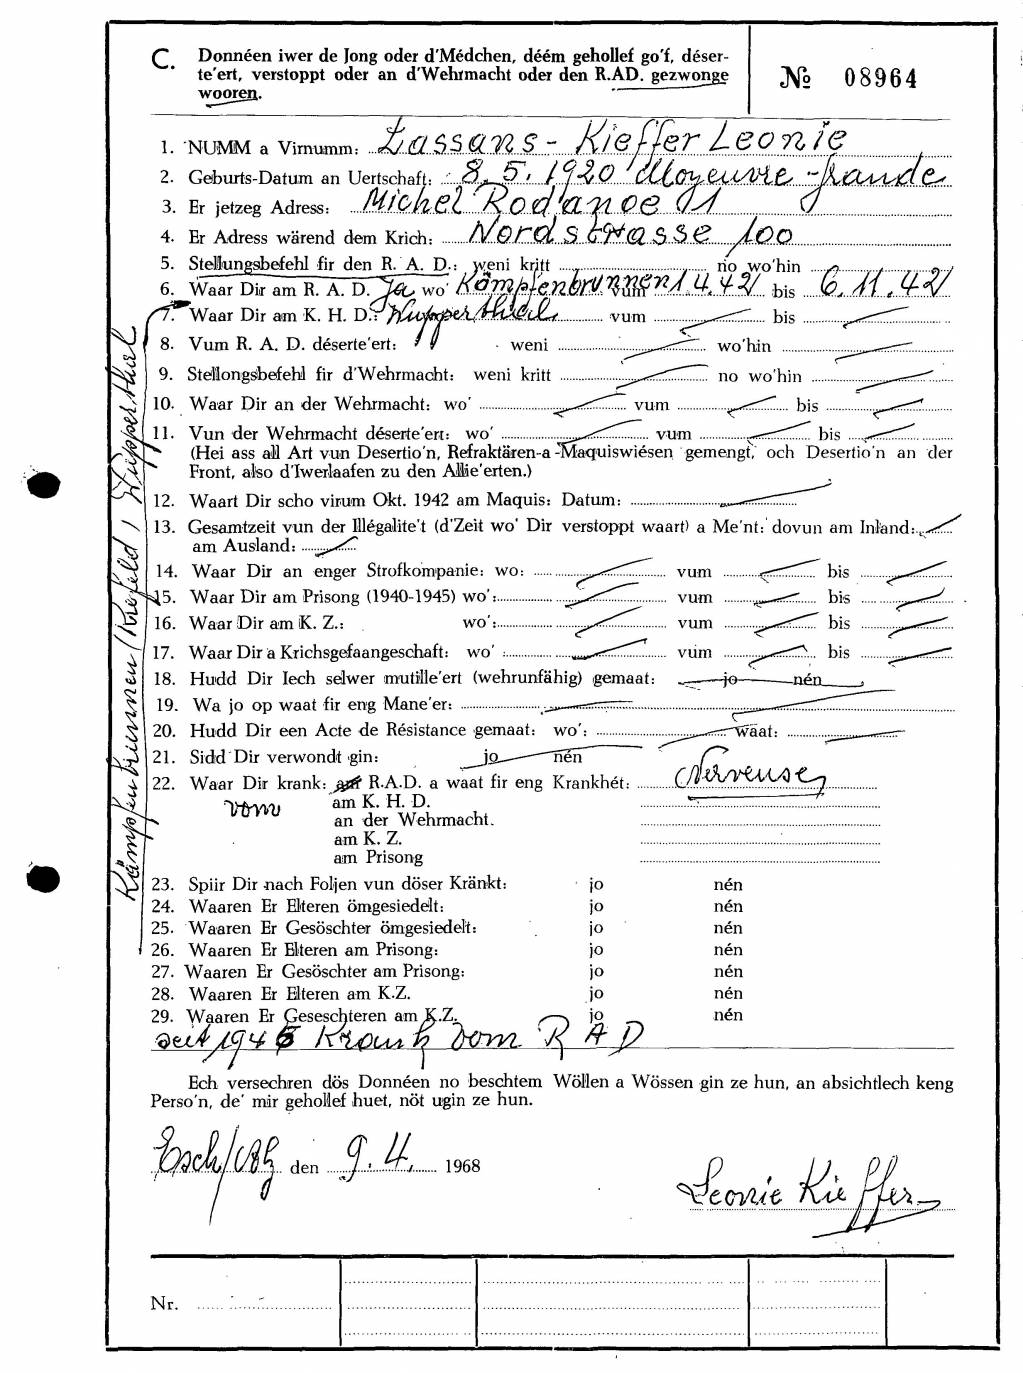 C. Donnéen iwer de Jong oder d'Médchen, déém gehollef go'f, déser-
te'ert, verstoppt oder an d'Wehrmacht oder den R.AD. gezwonge
wooren.
№ 08964
1. NUMM a Virnumm: Lassans - Kieffer Leonie
2. Geburts-Datum an Uertschaft: 8.5.1920 Moyeuvre - grande
3. Er jetzeg Adress: Michel Rodange 11
4. Er Adress wärend dem Krich: Nordstrasse 100
5. Stellungsbefehl fir den R. A. D.: weni kritt no wo'hin
6. Waar Dir am R. A. D. Ja wo' Kämpfenbrunnen vum 1.4.42 bis 6.11.42
7. Waar Dir am K. H. D.: Wupperthal vum bis
8. Vum R. A. D. déserte'ert: weni wo'hin
9. Stellongsbefehl fir d'Wehrmacht: weni kritt no wo'hin
10. Waar Dir an der Wehrmacht: wo' vum bis
11. Vun der Wehrmacht déserte'ert: wo' vum bis
(Hei ass all Art vun Desertio'n, Refraktären-a-Maquiswiésen gemengt, och Desertio'n an der
Front, also d'Iwerlaafen zu den Allie'erten.)
12. Waart Dir scho virum Okt. 1942 am Maquis: Datum:
13. Gesamtzeit vun der Illégalite't (d'Zeit wo' Dir verstoppt waart) a Me'nt: dovun am Inland:
am Ausland:
14. Waar Dir an enger Strofkompanie: wo: vum bis
15. Waar Dir am Prison﻿g (1940-1945) wo': vum bis
16. Waar Dir am K. Z.: wo': vum bis
17. Waar Dir a Krichsgefaangeschaft: wo': vum bis
18. Hudd Dir Iech selwer mutille'ert (wehrunfähig) gemaat: jo nén
19. Wa jo op waat fir eng Mane'er:
20. Hudd Dir een Acte de Résistance gemaat: wo': waat:
21. Sidd Dir verwondt gin: jo nén
22. Waar Dir krank: am R.A.D. a waat fir eng Krankhét: Nerveuse
vom am K. H. D.
an der Wehrmacht.
am K. Z.
am Prisong
23. Spiir Dir nach Foljen vun döser Kränkt: jo nén
24. Waaren Er Elteren ömgesiedelt: jo nén
25. Waaren Er Gesöschter ömgesiedelt: jo nén
26. Waaren Er Elteren am Prisong: jo nén
27. Waaren Er Gesöschter am Prisong: jo nén
28. Waaren Er Elteren am K.Z. jo nén
29. Waaren Er Geseschteren am K.Z. jo nén
seit 1945 Krank vom R A D
Kämpfenbrunnen (Krefeld) Wupperthal
Ech versechren dös Donnéen no beschtem Wöllen a Wössen gin ze hun, an absichtlech keng
Perso'n, de' mir gehollef huet, nöt ugin ze hun.
Esch/Alz den 9.4. 1968
Leonie Kieffer
Nr.